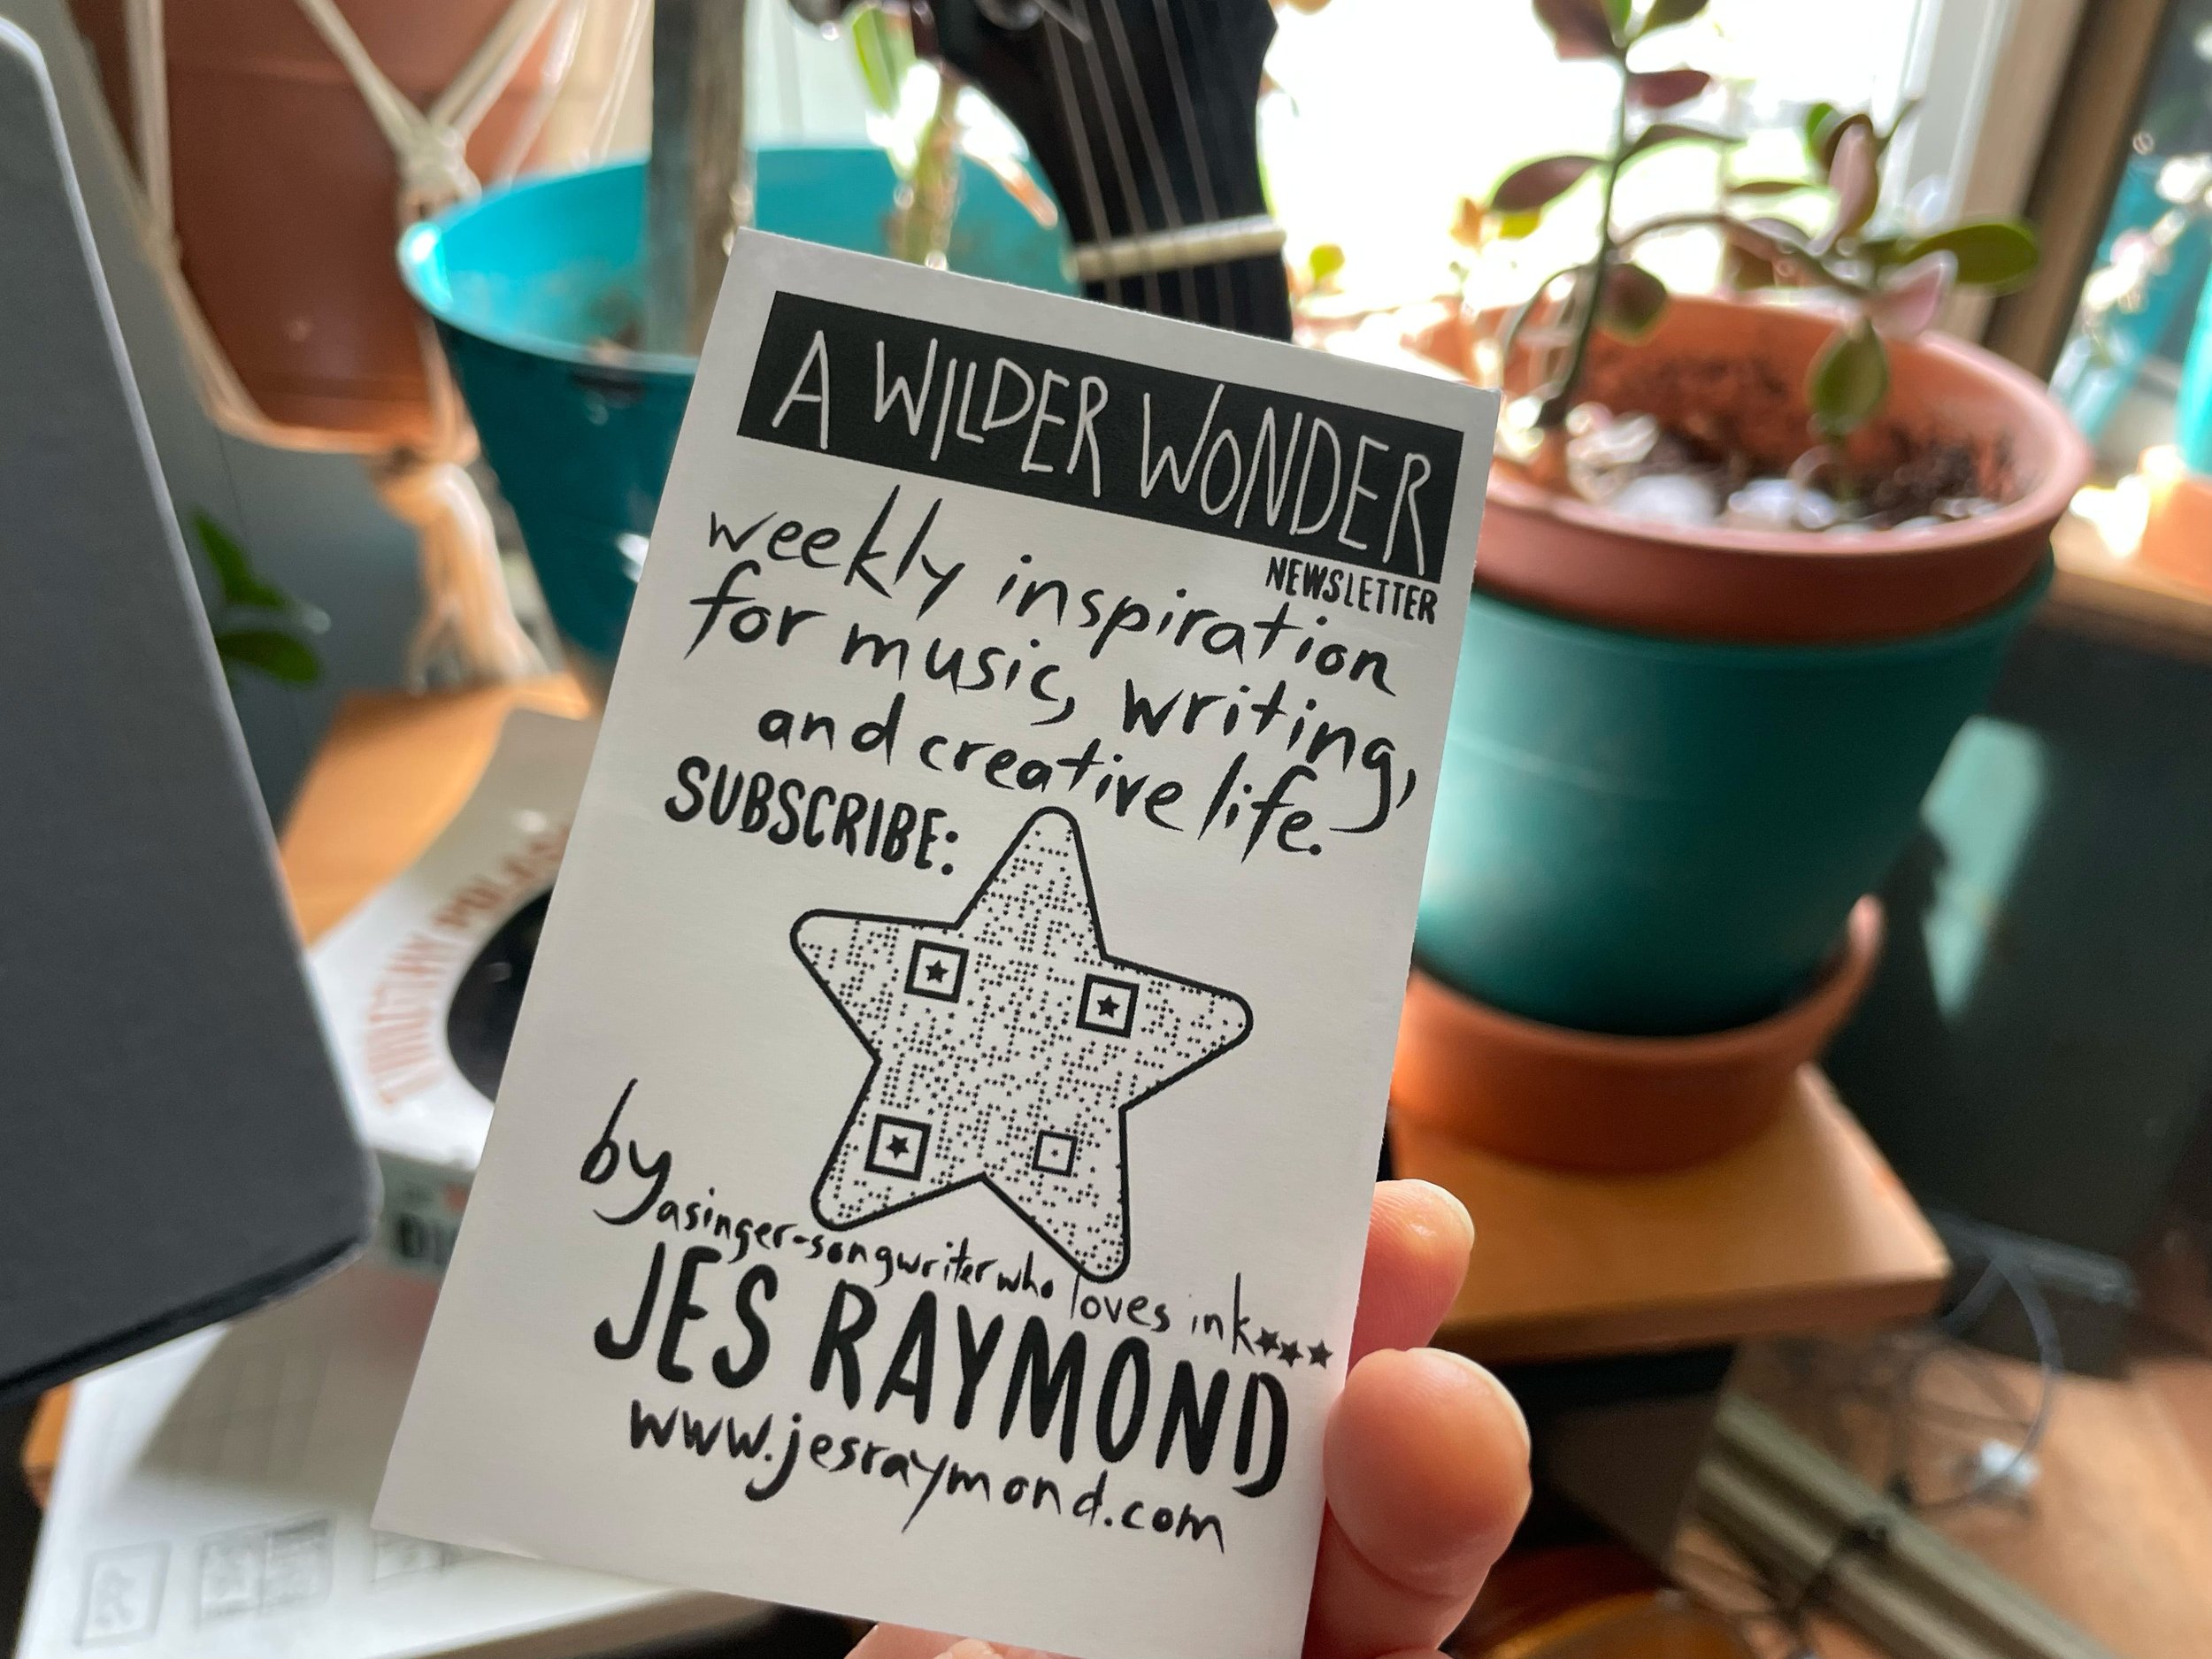 A WILDER WONDER
NEWSLETTER
weekly inspiration
for music, writing,
and creative life.
SUBSCRIBE:
by a singer-songwriter who loves ink★★★
JES RAYMOND
www.jesraymond.com